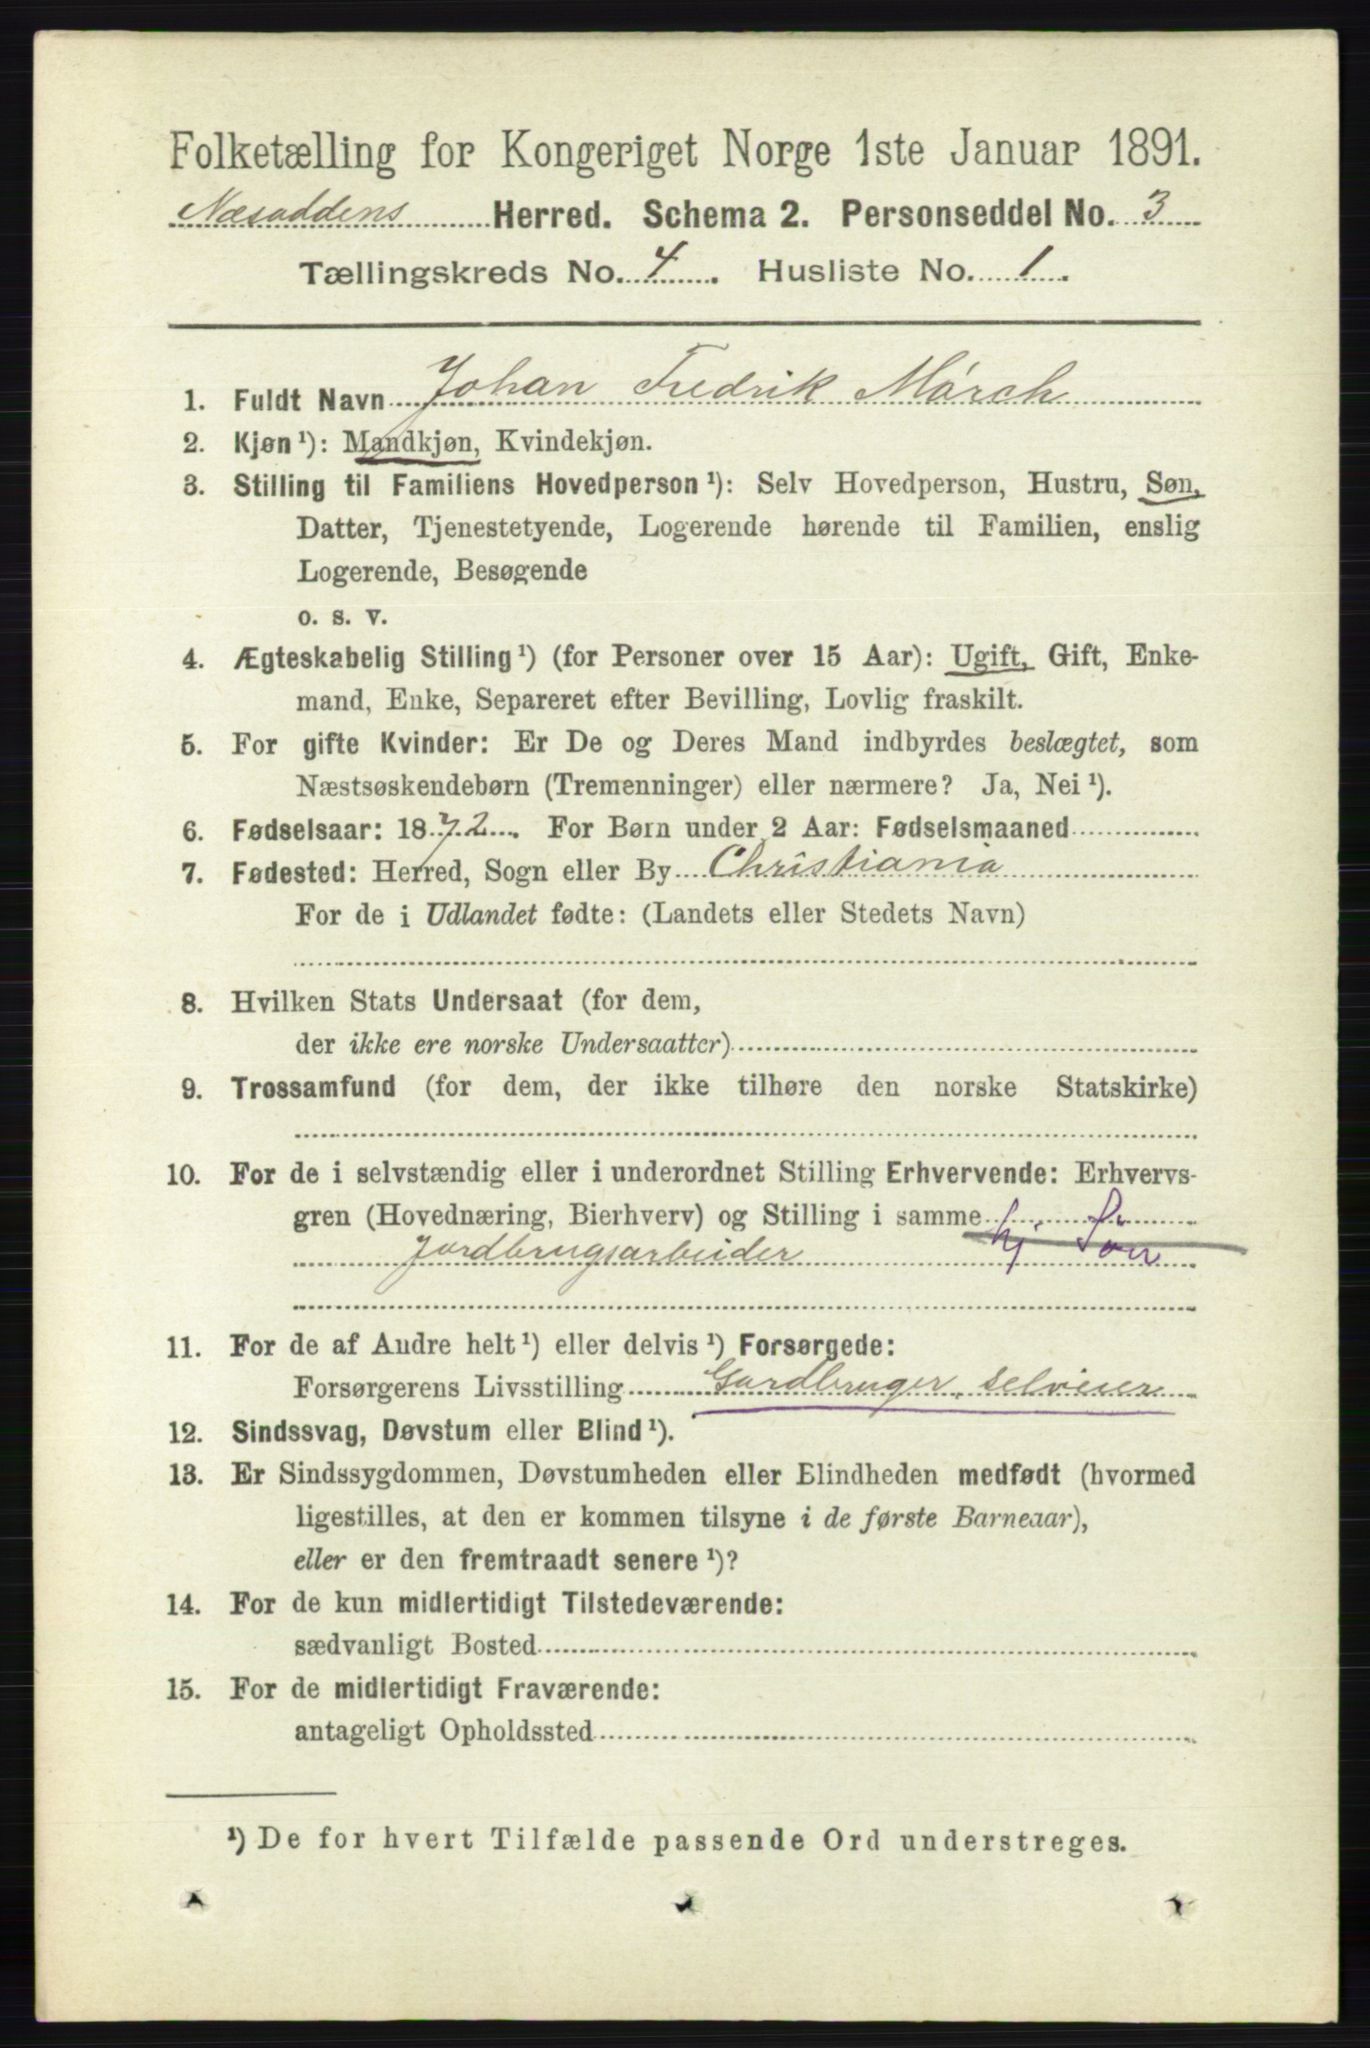 Folketælling for Kongeriget Norge 1ste Januar 1891.
Næsoddens Herred. Schema 2. Personseddel No. 3
Tællingskreds No. 4. Husliste No. 1.
1. Fuldt Navn Johan Fredrik Mørch
2. Kjøn ¹): Mandkjøn, Kvindekjøn.
3. Stilling til Familiens Hovedperson ¹): Selv Hovedperson, Hustru, Søn,
Datter, Tjenestetyende, Logerende hørende til Familien, enslig
Logerende, Besøgende
o. s. v.
4. Ægteskabelig Stilling ¹) (for Personer over 15 Aar): Ugift, Gift, Enke-
mand, Enke, Separeret efter Bevilling, Lovlig fraskilt.
5. For gifte Kvinder: Er De og Deres Mand indbyrdes beslægtet, som
Næstsøskendebørn (Tremenninger) eller nærmere? Ja, Nei ¹).
6. Fødselsaar: 1872. For Børn under 2 Aar: Fødselsmaaned
7. Fødested: Herred, Sogn eller By Christiania
For de i Udlandet fødte: (Landets eller Stedets Navn)
8. Hvilken Stats Undersaat (for dem,
der ikke ere norske Undersaatter)
9. Trossamfund (for dem, der ikke tilhøre den norske Statskirke)
10. For de i selvstændig eller i underordnet Stilling Erhvervende: Erhvervs-
gren (Hovednæring, Bierhverv) og Stilling i samme hj. Søn
Jordbrugsarbeider
11. For de af Andre helt ¹) eller delvis ¹) Forsørgede:
Forsørgerens Livsstilling Gardbruger, selveier
12. Sindssvag, Døvstum eller Blind ¹).
13. Er Sindssygdommen, Døvstumheden eller Blindheden medfødt (hvormed
ligestilles, at den er kommen tilsyne i de første Barneaar),
eller er den fremtraadt senere ¹)?
14. For de kun midlertidigt Tilstedeværende:
sædvanligt Bosted
15. For de midlertidigt Fraværende:
antageligt Opholdssted
¹) De for hvert Tilfælde passende Ord understreges.